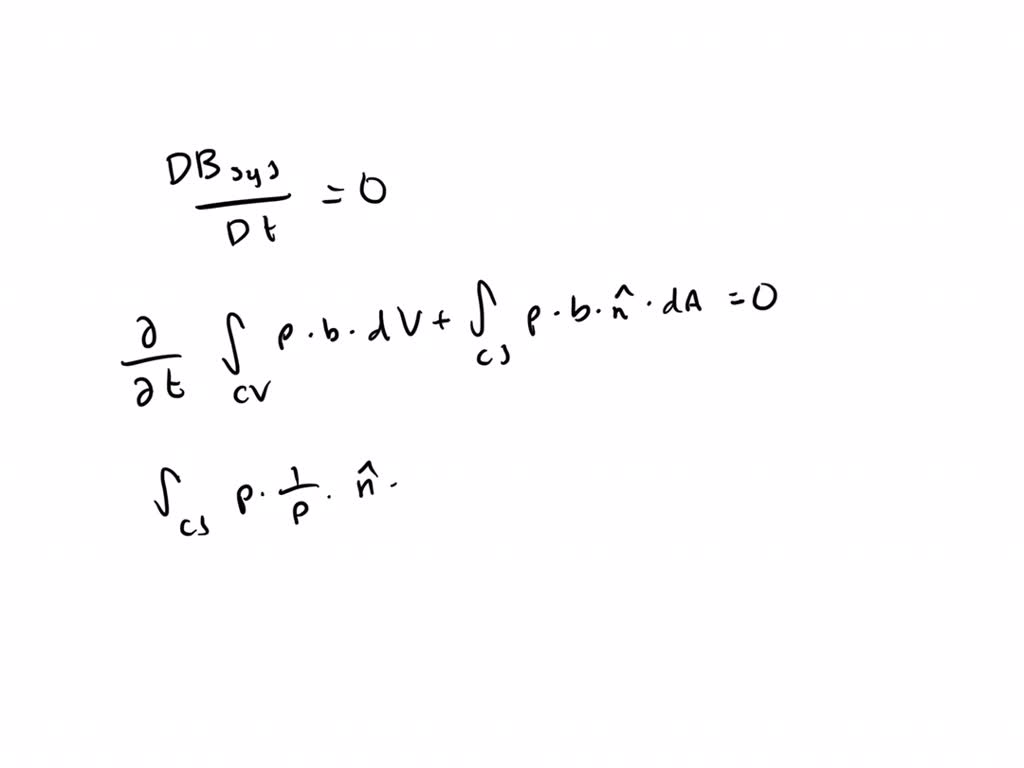 DB sys / Dt = 0
∂/∂t ∫CV ρ · b · dV + ∫CS ρ · b · n̂ · dA = 0
∫CS ρ · 1/ρ · n̂ ·